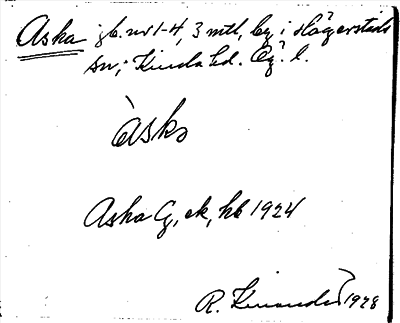 Aska jb. nr 1-4, 3 mtl, by i Hägerstads
sn, Kinda hd. Ög. l.
àska
Aska G, ek, hb 1924
R. 1928